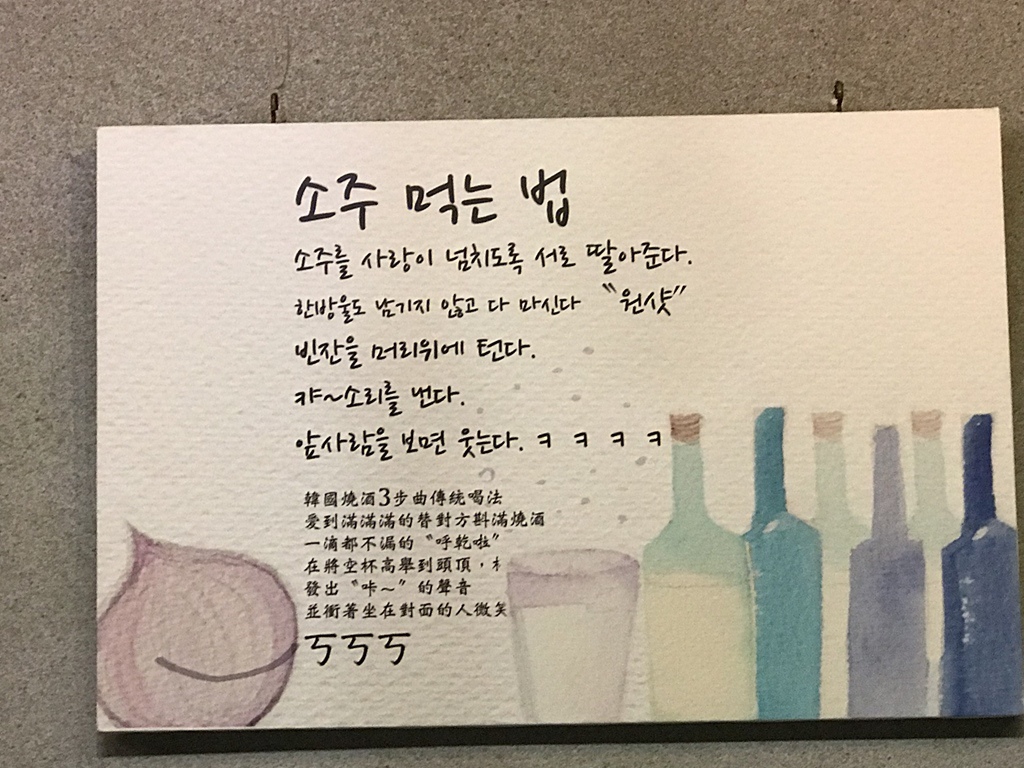 소주 먹는 법
소주를 사랑이 넘치도록 서로 딸아준다.
한방울도 남기지 않고 다 마신다 "원샷"
빈잔을 머리위에 턴다.
캬~소리를 낸다.
앞사람을 보면 웃는다. ㅋ ㅋ ㅋ ㅋ
韓國燒酒3步曲傳統喝法
愛到滿滿滿的替對方斟滿燒酒
一滴都不漏的"呼乾啦"
在將空杯高舉到頭頂，
發出"咔～"的聲音
並衝著坐在對面的人微笑
ㄎㄎㄎ